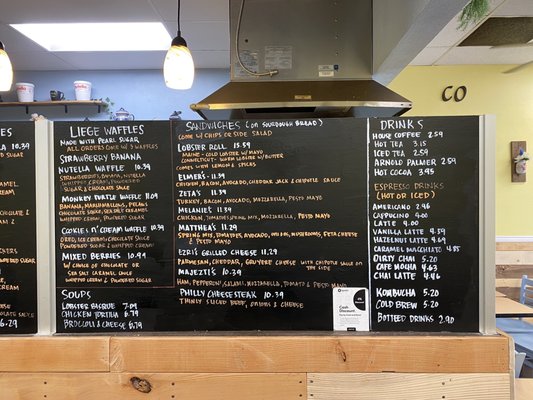 LIEGE WAFFLES
MADE WITH PEARL SUGAR
ALL ORDERS COME W/ 2 WAFFLES
STRAWBERRY BANANA
NUTELLA WAFFLE 10.39
STRAWBERRIES, BANANA, NUTELLA
WHIPPED CREAM, POWDERED
SUGAR & CHOCOLATE SAUCE
MONKEY TURTLE WAFFLE 11.09
BANANA, MARSHMALLOWS, PECANS,
CHOCOLATE SAUCE, SEA SALT CARAMEL
WHIPPED CREAM, POWDERED SUGAR
COOKIES N' CREAM WAFFLE 10.39
OREO, ICE CREAM, CHOCOLATE SAUCE
WHIPPED CREAM & POWDERED SUGAR
MIXED BERRIES 10.99
W/ CHOICE OF CHOCOLATE OR
SEA SALT CARAMEL SAUCE
WHIPPED CREAM & POWDERED SUGAR
SOUPS
LOBSTER BISQUE 7.09
CHICKEN TORTILLA 6.79
BROCCOLI & CHEESE 6.79
SANDWICHES (ON SOURDOUGH BREAD)
COME W/ CHIPS OR SIDE SALAD
LOBSTER ROLL 15.59
MAINE - COLD LOBSTER W/ MAYO
CONNECTICUT - WARM LOBSTER W/ BUTTER
COMES WITH LEMON & SPICES
ELMER'S 11.39
CHICKEN, BACON, AVOCADO, CHEDDAR JACK & CHIPOTLE SAUCE
ZETA'S 11.39
TURKEY, BACON, AVOCADO, MOZZARELLA, PESTO MAYO
MELANIE'S 11.39
CHICKEN, TOMATO, SPRING MIX, MOZZARELLA, PESTO MAYO
MATTHEA'S 11.29
SPRING MIX, TOMATOES, AVOCADO, ONIONS, MUSHROOMS, FETA CHEESE
& PESTO MAYO
EZRI'S GRILLED CHEESE 11.29
PARMESAN, CHEDDAR, GRUYERE CHEESE WITH CHIPOTLE SAUCE ON
THE SIDE
MAJEZTI'S 10.39
HAM, PEPPERONI, SALAMI, MOZZARELLA, TOMATO & PESTO MAYO
PHILLY CHEESESTEAK 10.39
THINLY SLICED BEEF, ONIONS & CHEESE
Cash
Discount!
DRINKS
HOUSE COFFEE 2.59
HOT TEA 3.15
ICED TEA 2.59
ARNOLD PALMER 2.59
HOT COCOA 3.95
ESPRESSO DRINKS
(HOT OR ICED)
AMERICANO 2.96
CAPPUCINO 4.00
LATTE 4.00
VANILLA LATTE 4.59
HAZELNUT LATTE 4.69
CARAMEL MACCHIATE 4.85
DIRTY CHAI 5.20
CAFE MOCHA 4.63
CHAI LATTE 4.46
KOMBUCHA 5.20
COLD BREW 5.20
BOTTLED DRINKS 2.90
CO